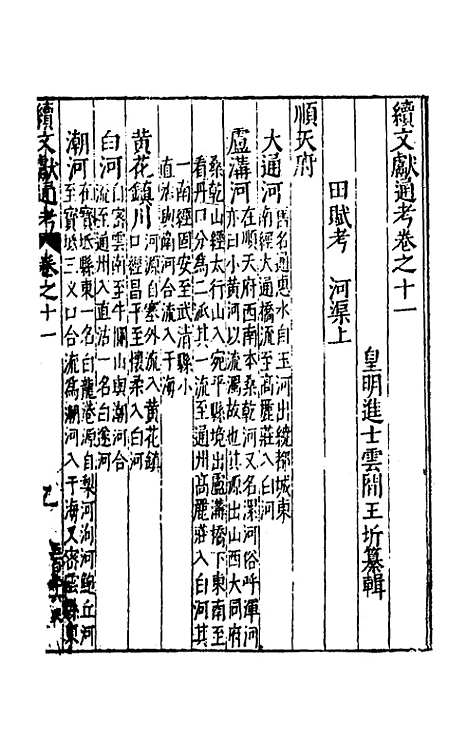 續文獻通考卷之十一
皇明進士雲間王圻纂輯
田賦考 河渠上
順天府
大通河舊名通惠水自玉河出繞都城東
南經大通橋流至高麗莊入白河
盧溝河在順天府西南本桑乾河又名漯河俗呼渾河
亦曰小黃河以流濁故也其源出山西大同府
桑乾山經太行山入宛平縣境出盧溝橋下東南至
看丹口分為二派其一流至通州高麗莊入白河其
一南經固安至武清縣小
直沽與衛河合流入于海
黃花鎮川河源自塞外流入黃花鎮
口經昌平至懷柔入白河
白河自密雲南至牛欄山與潮河合
流至通州入直沽一名白遂河
潮河在寶坻縣東一名白龍港源自梨河泃河鮑丘河
至寶坻三义口合流為潮河入于海又密雲縣東
續文獻通考 卷之十一